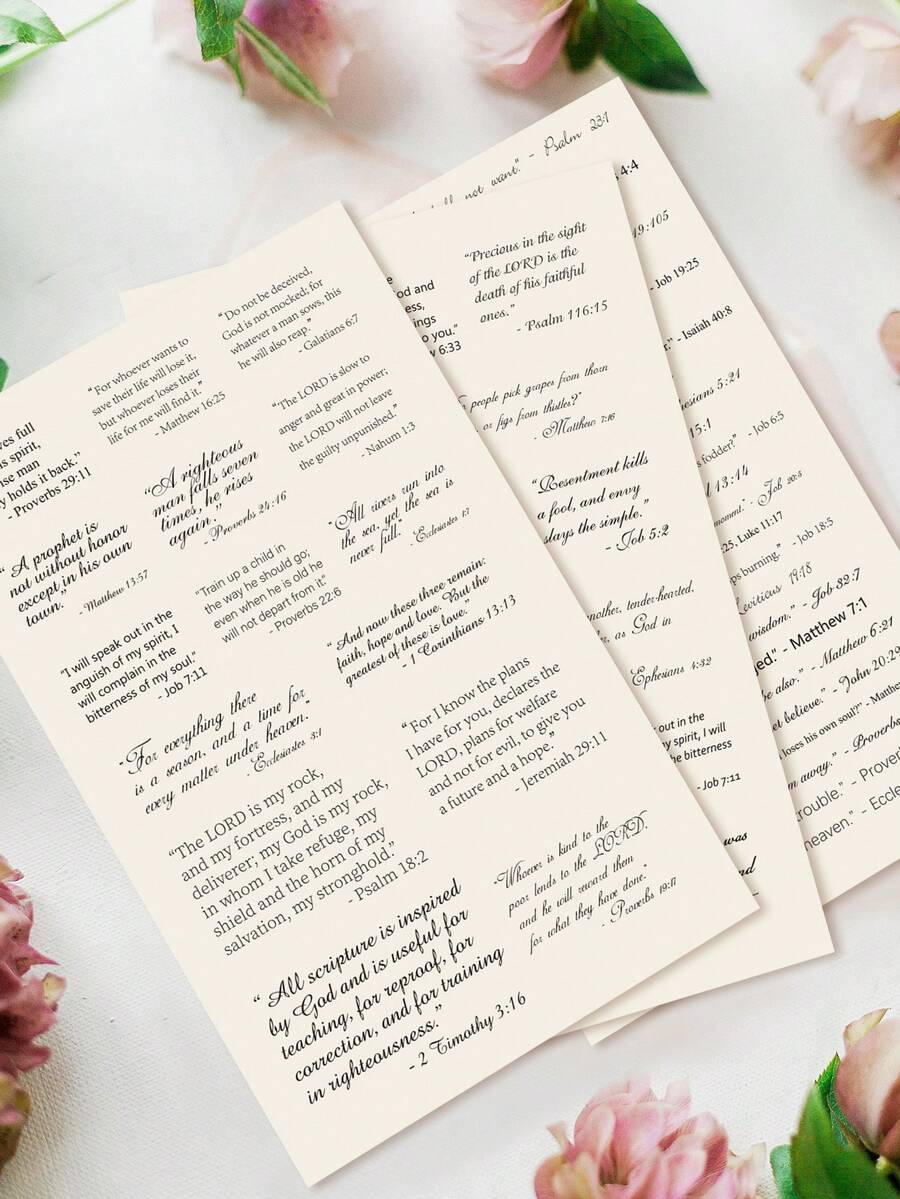 "Do not be deceived,
God is not mocked; for
whatever a man sows, this
he will also reap."
- Galatians 6:7
"For whoever wants to
save their life will lose it,
but whoever loses their
life for me will find it."
- Matthew 16:25
ves full
s spirit,
se man
y holds it back."
- Proverbs 29:11
"The LORD is slow to
anger and great in power;
the LORD will not leave
the guilty unpunished."
- Nahum 1:3
"A righteous
man falls seven
times, he rises
again."
- Proverbs 24:16
"A prophet is
not without honor
except in his own
town."
- Matthew 13:57
"All rivers run into
the sea, yet the sea is
never full."
- Ecclesiastes 1:7
"Train up a child in
the way he should go;
even when he is old he
will not depart from it."
- Proverbs 22:6
"I will speak out in the
anguish of my spirit, I
will complain in the
bitterness of my soul."
- Job 7:11
"And now these three remain:
faith, hope and love. But the
greatest of these is love."
- 1 Corinthians 13:13
"For everything there
is a season, and a time for
every matter under heaven."
- Ecclesiastes 3:1
"For I know the plans
I have for you, declares the
LORD, plans for welfare
and not for evil, to give you
a future and a hope."
- Jeremiah 29:11
"The LORD is my rock,
and my fortress, and my
deliverer; my God is my rock,
in whom I take refuge, my
shield and the horn of my
salvation, my stronghold."
- Psalm 18:2
"Whoever is kind to the
poor lends to the LORD,
and he will reward them
for what they have done."
- Proverbs 19:17
"All scripture is inspired
by God and is useful for
teaching, for reproof, for
correction, and for training
in righteousness."
- 2 Timothy 3:16
"Precious in the sight
of the LORD is the
death of his faithful
ones."
- Psalm 116:15
od and
ess,
ings
o you."
w 6:33
people pick grapes from thorn
or figs from thistles?"
- Matthew 7:16
"Resentment kills
a fool, and envy
slays the simple."
- Job 5:2
nother, tender-hearted,
r, as God in
Ephesians 4:32
out in the
y spirit, I will
e bitterness
- Job 7:11
was
nd
not want." - Psalm 23:1
4:4
19:105
- Job 19:25
- Isaiah 40:8
hesians 5:21
15:1
s fodder?" - Job 6:5
13:14
moment." - Job 20:5
25, Luke 11:17
ps burning." - Job 18:5
Leviticus 19:18
wisdom." - Job 32:7
ed." - Matthew 7:1
be also." - Matthew 6:21
et believe." - John 20:29
loses his own soul?" - Matthe
m away." - Proverbs
trouble." - Prover
heaven." - Eccle